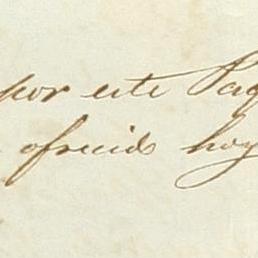 por este Paq
ofrecido hoy